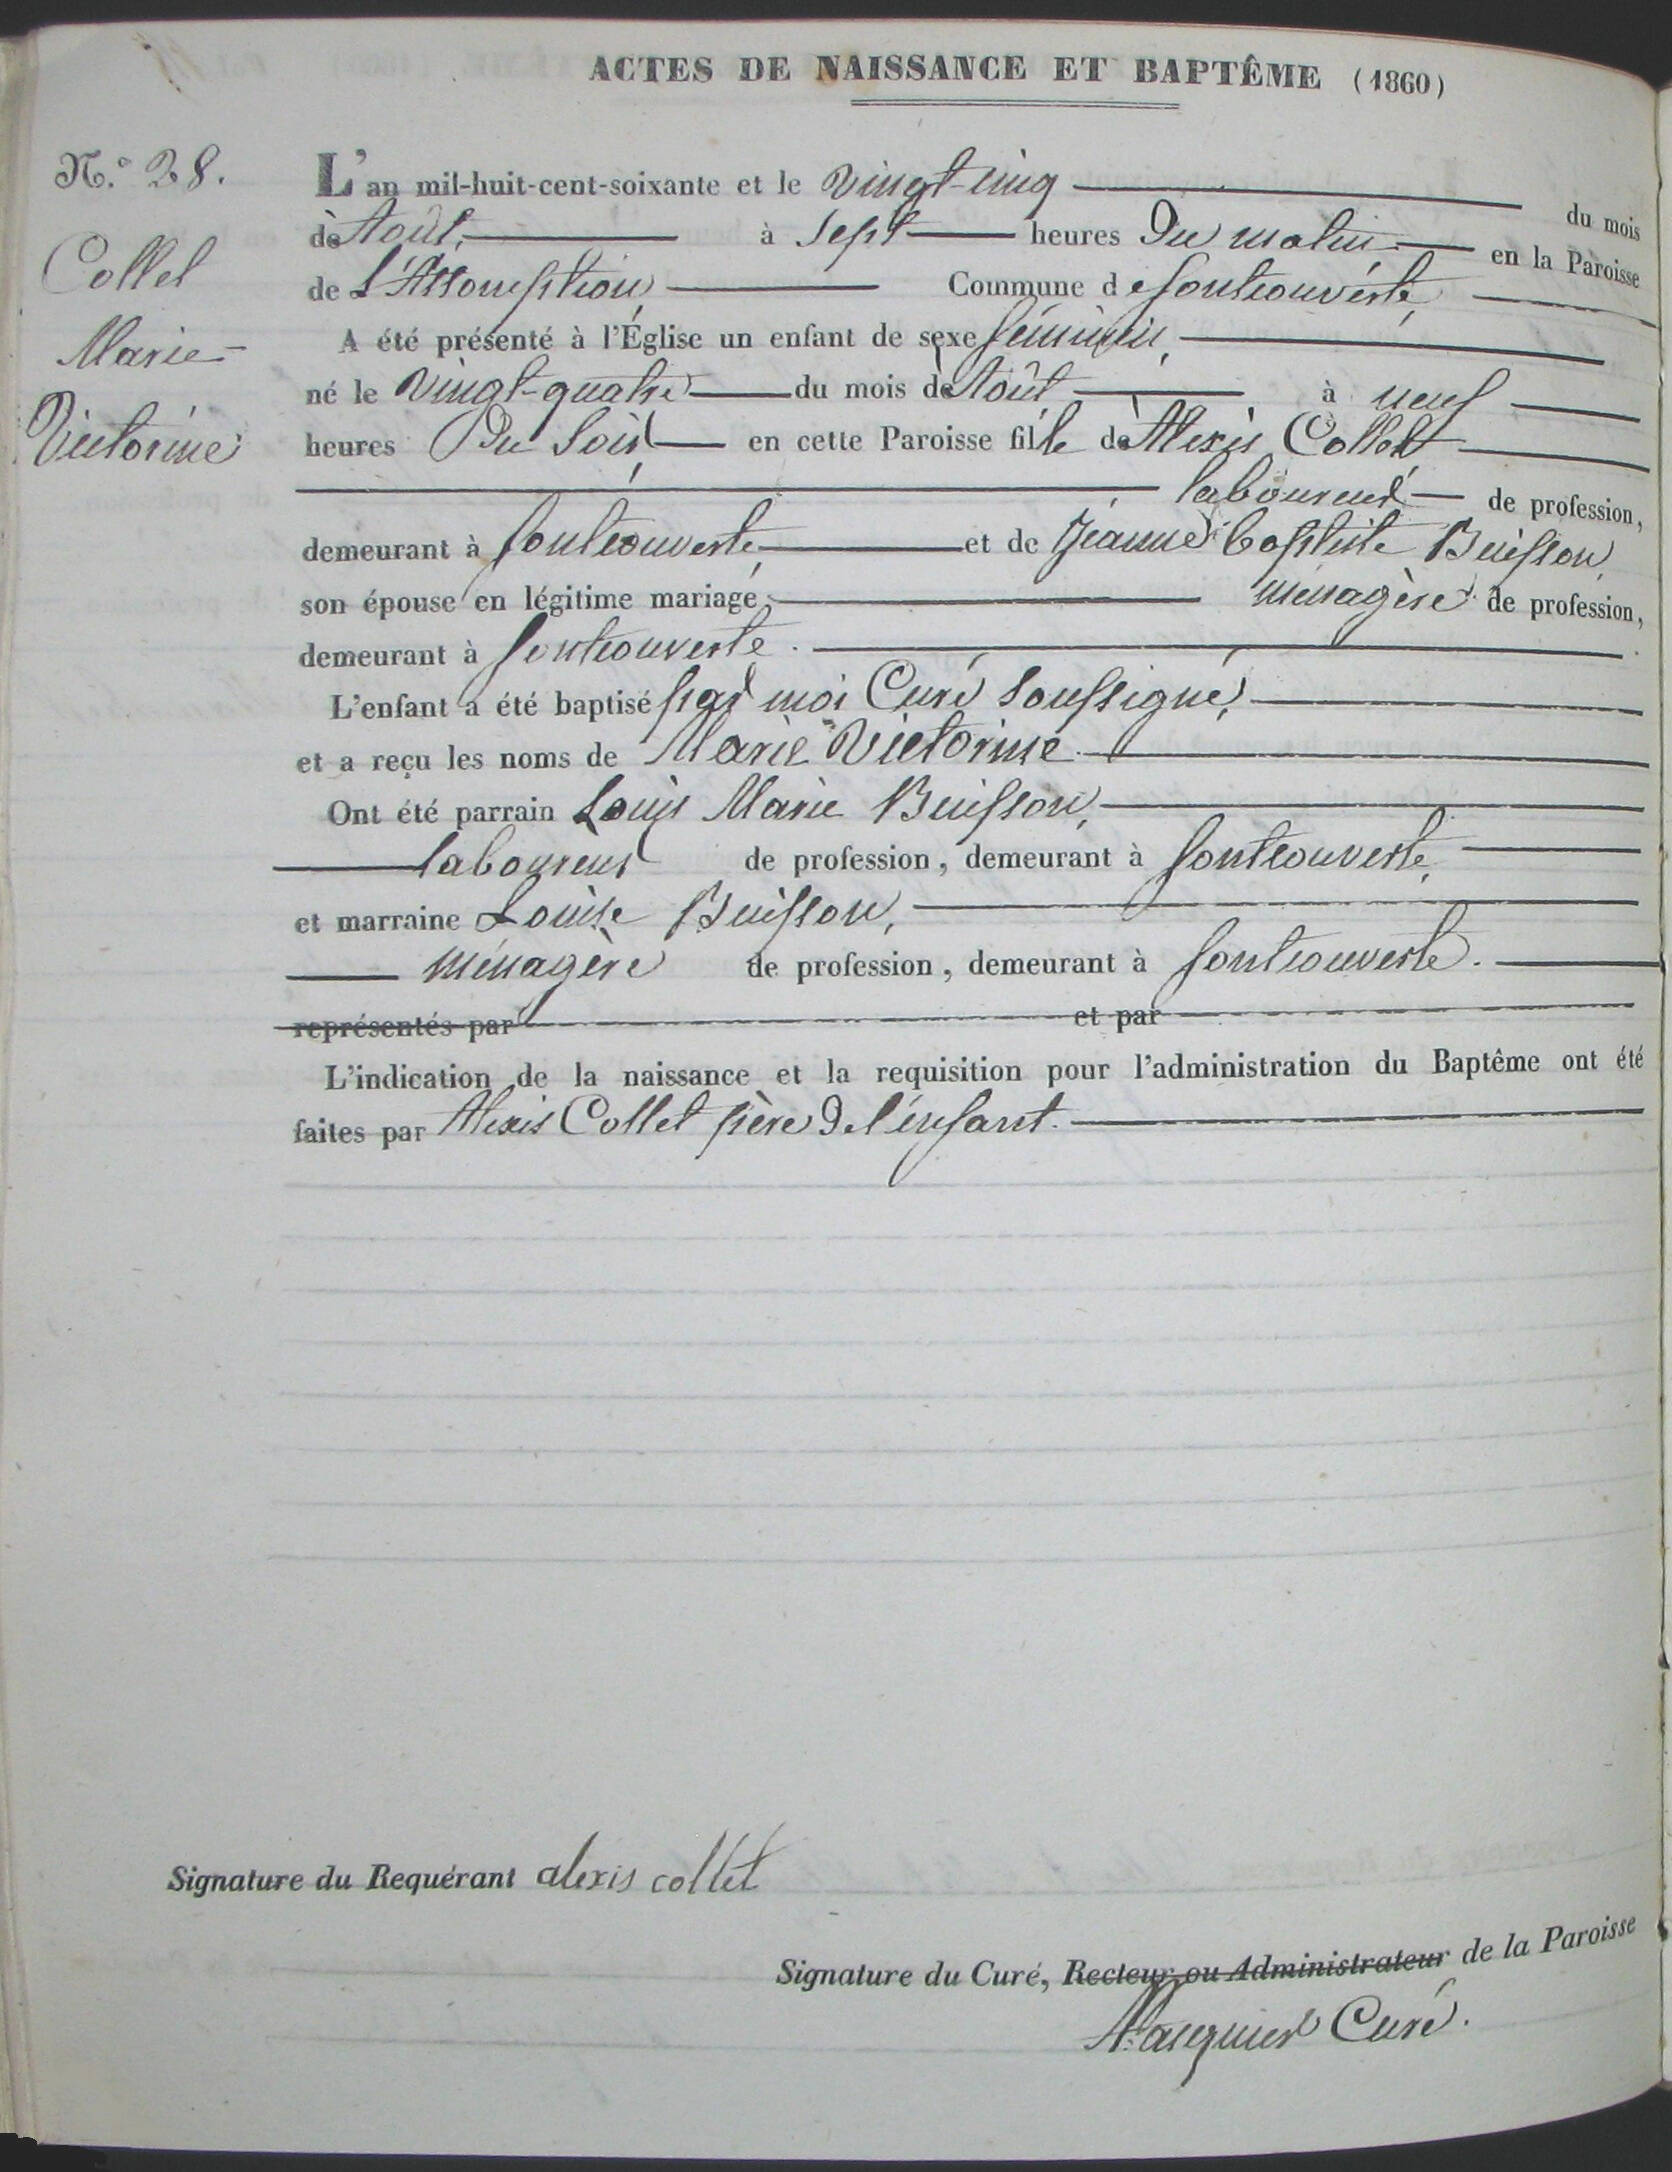 ACTES DE NAISSANCE ET BAPTÊME (1860)
N.° 28.
Collet
Marie-
Victorine
L'an mil-huit-cent-soixante et le vingt-cinq du mois
de Août, à sept heures du matin en la Paroisse
de L'Assomption, Commune de fontcouverte,
A été présenté à l'Église un enfant de sexe féminin,
né le vingt-quatre du mois de Août à neuf
heures du soir, en cette Paroisse fille de Alexis Collet
laboureur de profession,
demeurant à fontcouverte, et de Jeanne Baptiste Buisson,
son épouse en légitime mariage, ménagère de profession,
demeurant à fontcouverte.
L'enfant a été baptisé par moi Curé soussigné,
et a reçu les noms de Marie Victorine.
Ont été parrain Louis Marie Buisson,
laboureur de profession, demeurant à fontcouverte,
et marraine Louise Buisson,
ménagère de profession, demeurant à fontcouverte.
représentés par et par
L'indication de la naissance et la requisition pour l'administration du Baptême ont été
faites par Alexis Collet père de l'enfant.
Signature du Requérant alexis collet
Signature du Curé, Recteur ou Administrateur de la Paroisse
Curé.